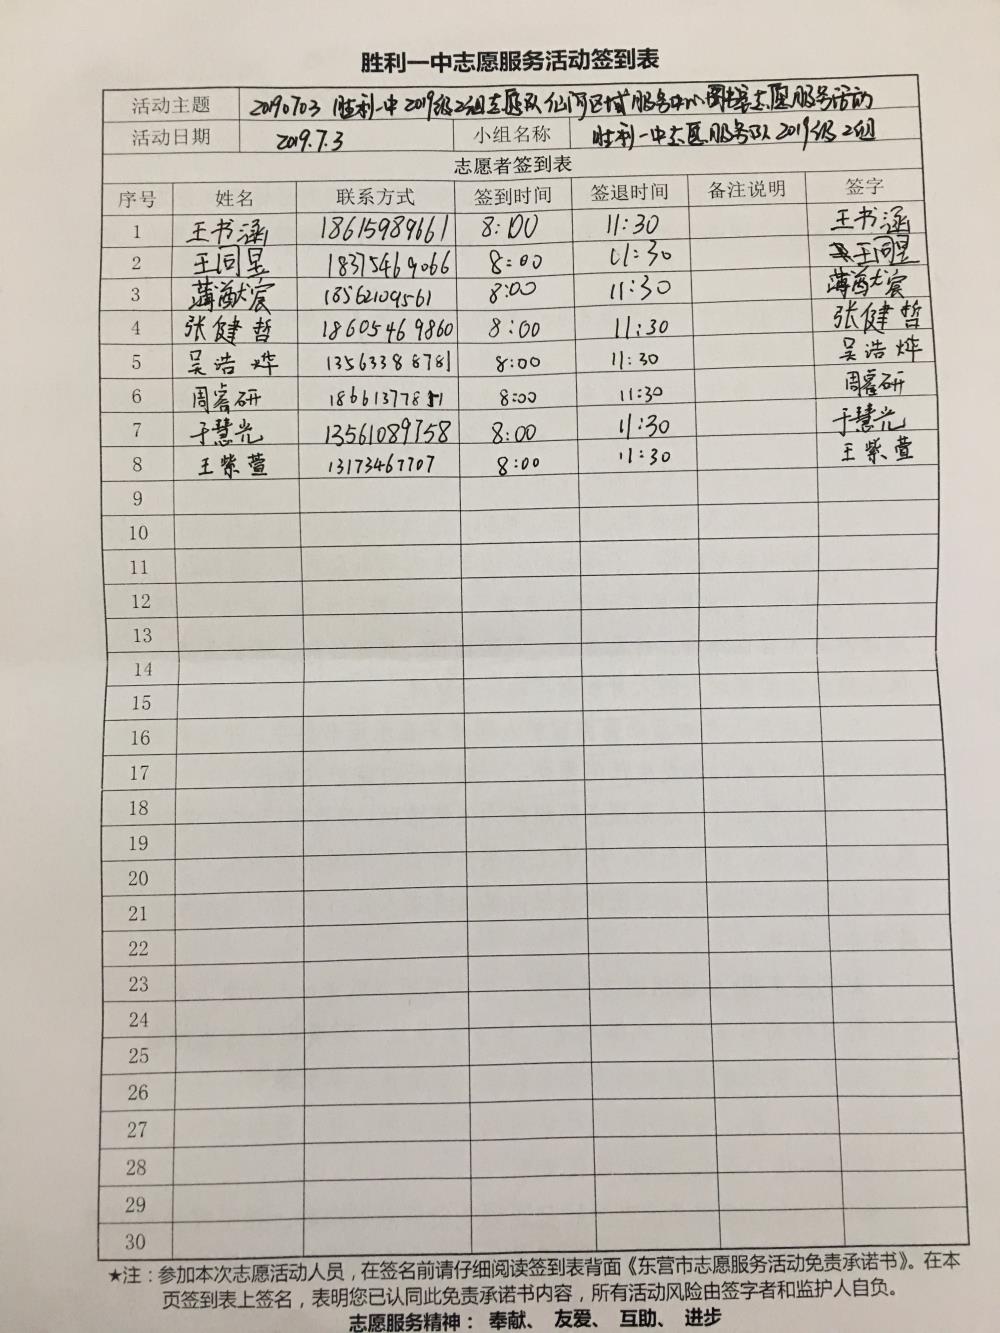 胜利一中志愿服务活动签到表
活动主题 20190703 胜利一中2019级2组志愿队仙河区域服务中心图书馆志愿服务活动
活动日期 2019.7.3 小组名称 胜利一中志愿服务队2019级2组
志愿者签到表
序号 姓名 联系方式 签到时间 签退时间 备注说明 签字
1 王书涵 18615989661 8:00 11:30 王书涵
2 王同昱 18315469066 8:00 11:30 王同昱
3 薄猷宸 18562109561 8:00 11:30 薄猷宸
4 张健哲 18605469860 8:00 11:30 张健哲
5 吴浩烨 13563388781 8:00 11:30 吴浩烨
6 周睿研 8:00 11:30 周睿研
7 于慧光 13561089758 8:00 11:30 于慧光
8 王紫萱 13173467707 8:00 11:30 王紫萱
9
10
11
12
13
14
15
16
17
18
19
20
21
22
23
24
25
26
27
28
29
30
★注：参加本次志愿活动人员，在签名前请仔细阅读签到表背面《东营市志愿服务活动免责承诺书》。在本
页签到表上签名，表明您已认同此免责承诺书内容，所有活动风险由签字者和监护人自负。
志愿服务精神： 奉献、 友爱、 互助、 进步